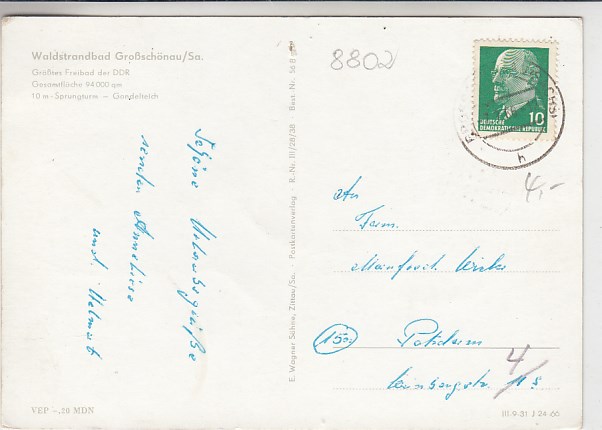 Waldstrandbad Großschönau/Sa.
Größtes Freibad der DDR
Gesamtfläche 94 000 qm
10 m-Sprungturm — Gondelteich
Schöne Urlaubsgrüße
senden Anneliese
und Helmut
VEP -.20 MDN
E. Wagner Söhne, Zittau/Sa. Postkartenverlag R.-Nr. III/28/38 Best. Nr. 56 B
8802
DEUTSCHE
DEMOKRATISCHE REPUBLIK
10
4,-
An
Fam.
Manfred
Potsdam
4
III.9-31 J 24-66